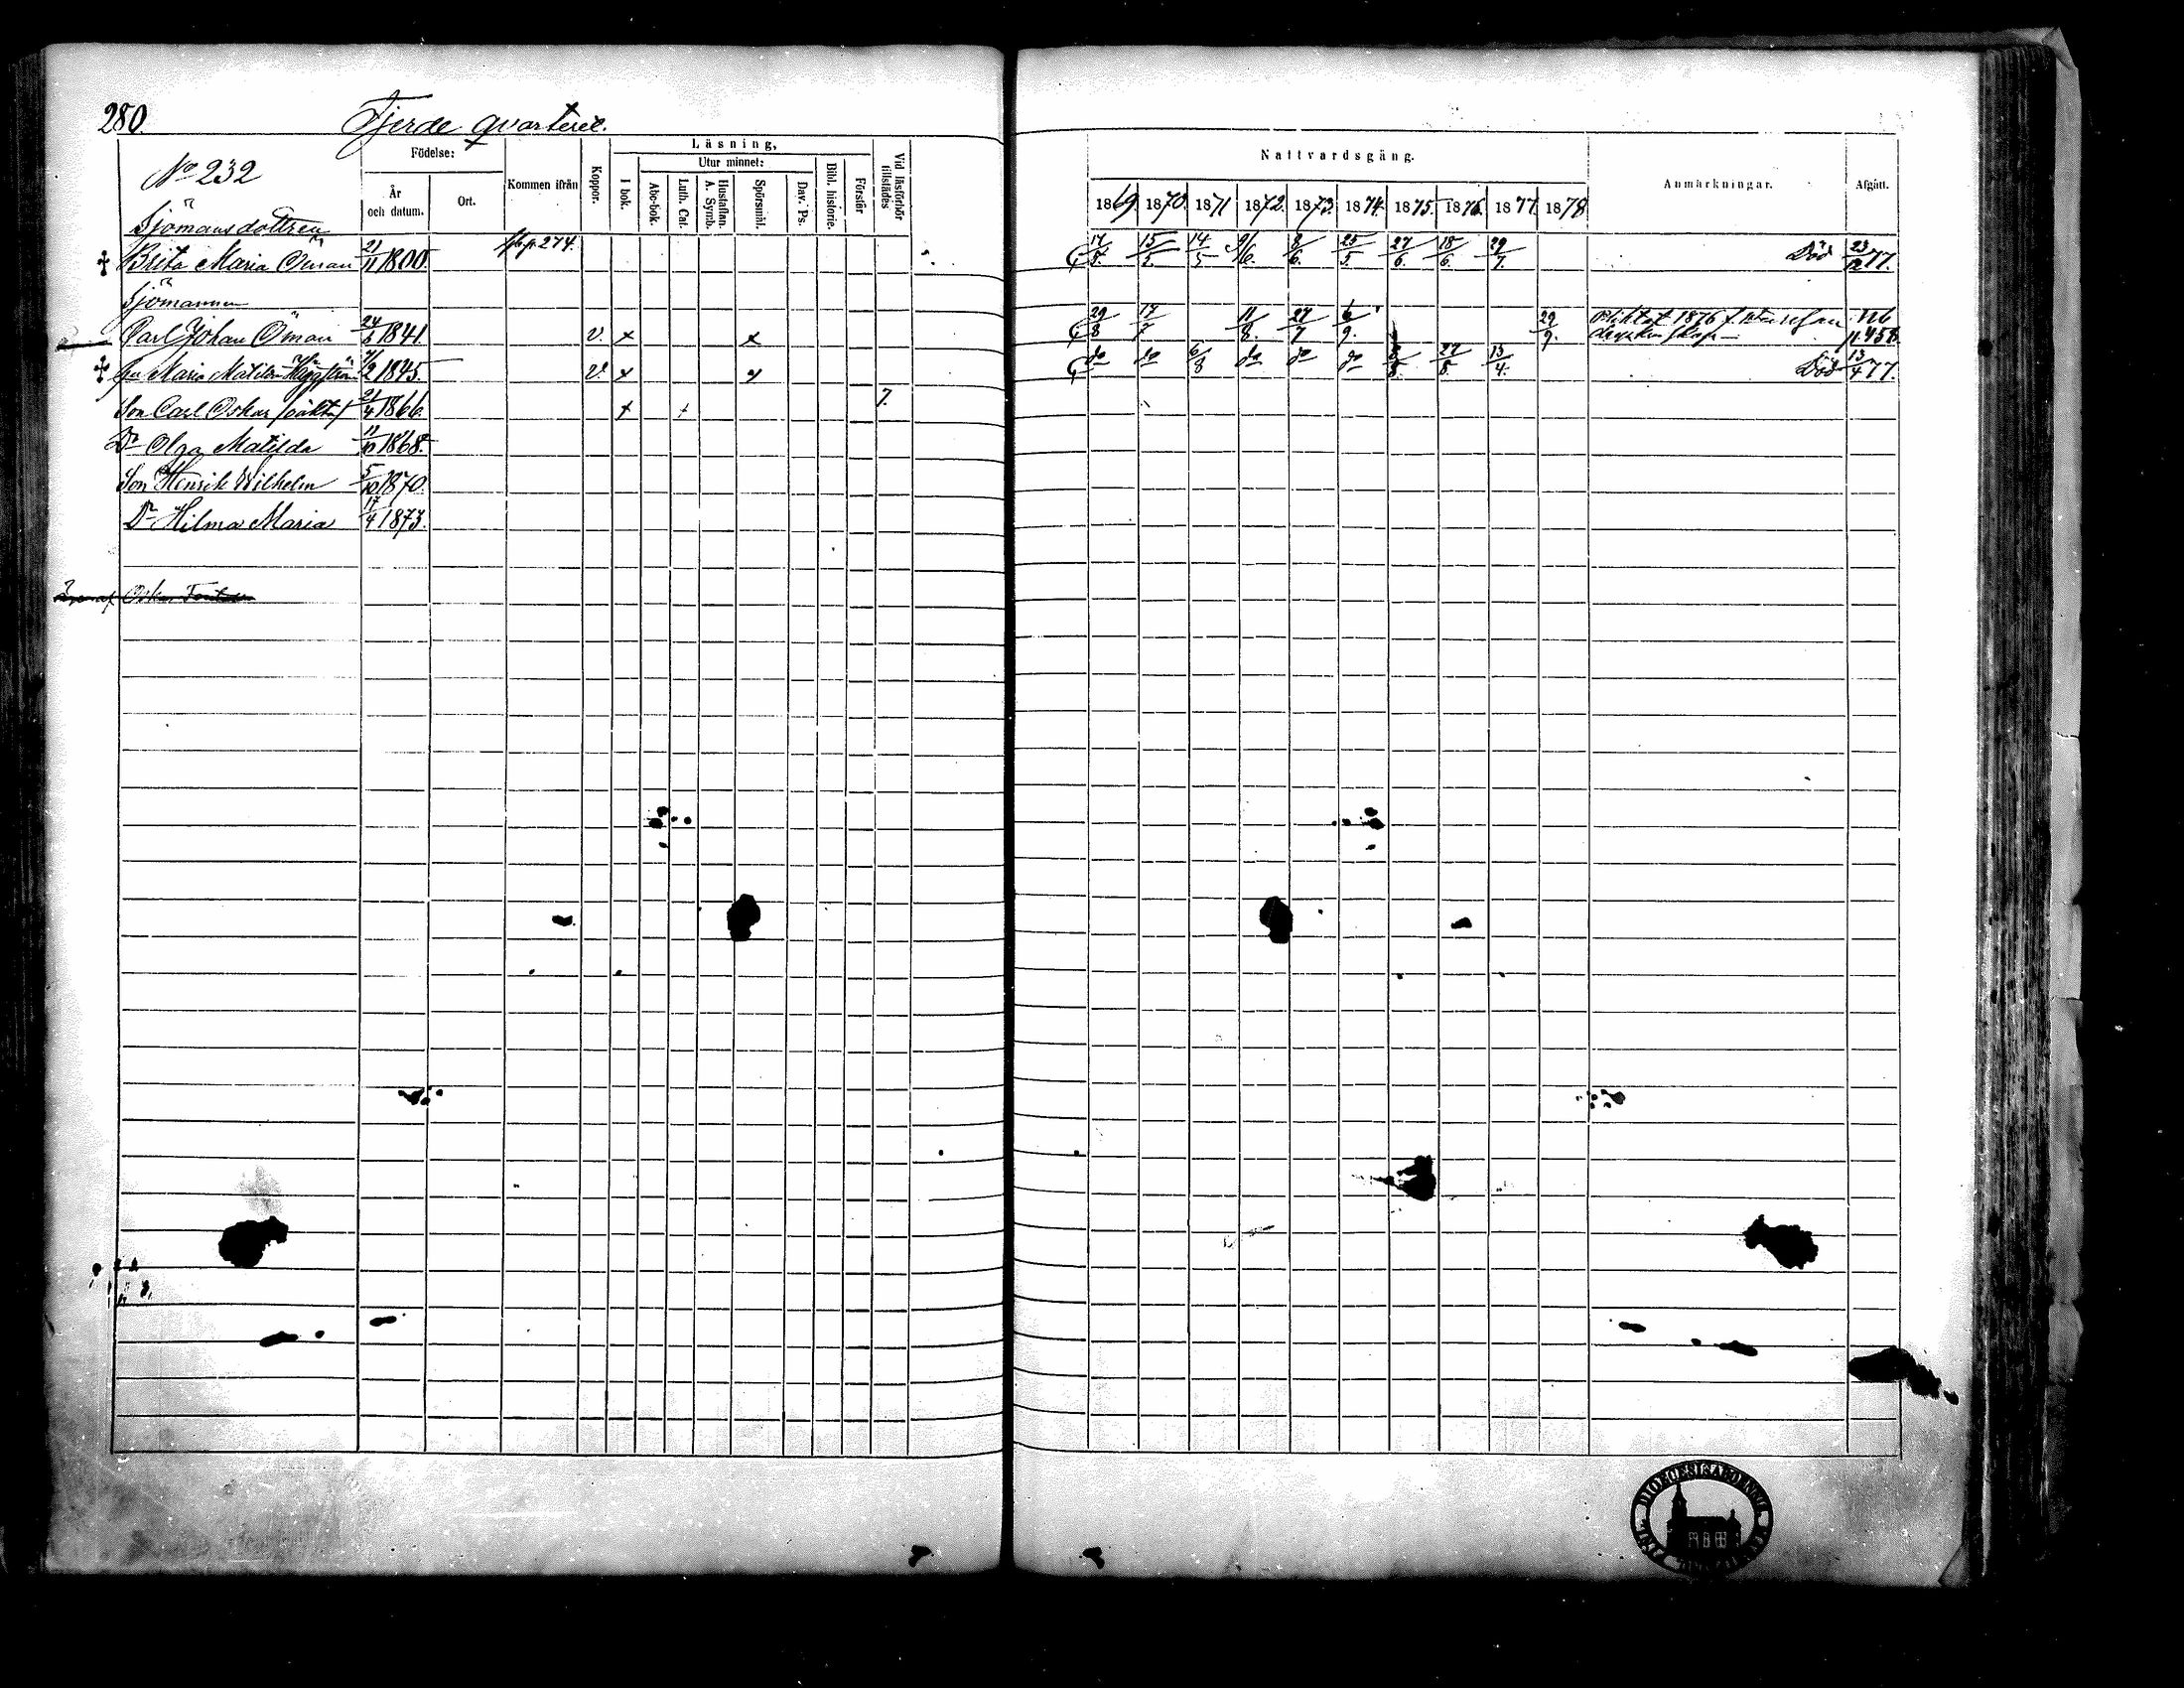 280. Fjerde quarteret.
Läsning,
Födelse: Kommen ifrån Koppor. I bok. Utur minnet: Bibl. historie. Förstår Vid läsförhör tillstädes
År och datum. Ort. Abc-bok. Luth. Cat. Hustaflan. A. Symb. Spörsmål. Dav. Ps.
Nattvardsgång. Anmärkningar. Afgått.
1869 1870. 1871 1872. 1873. 1874. 1875. 1876. 1877. 1878
No 232
Sjömansdottren
Brita Maria Öman 21/11 1800. p. 274. 17/5. 15/ 14/5 9/6. 8/6. 25/5. 27/6. 18/6. 29/7. Död 23/12 77.
Sjömannen
Carl Johan Öman 24/ 1841. v. x x 29/8 17/7 11/8. 27/7 6/9. 29/9. 1876 f.
p. 458.
Maria Matilda 1845. v. x x do do 6/8 do do do 27/8. 13/4. Död 13/4 77.
Son Carl Oskar 21/4 1866. x + 7.
Dr Olga Matilda 11/10 1868.
Son Henrik Wilhelm 5/10 1870.
Dr Hilma Maria 17/4 1873.
Oskar